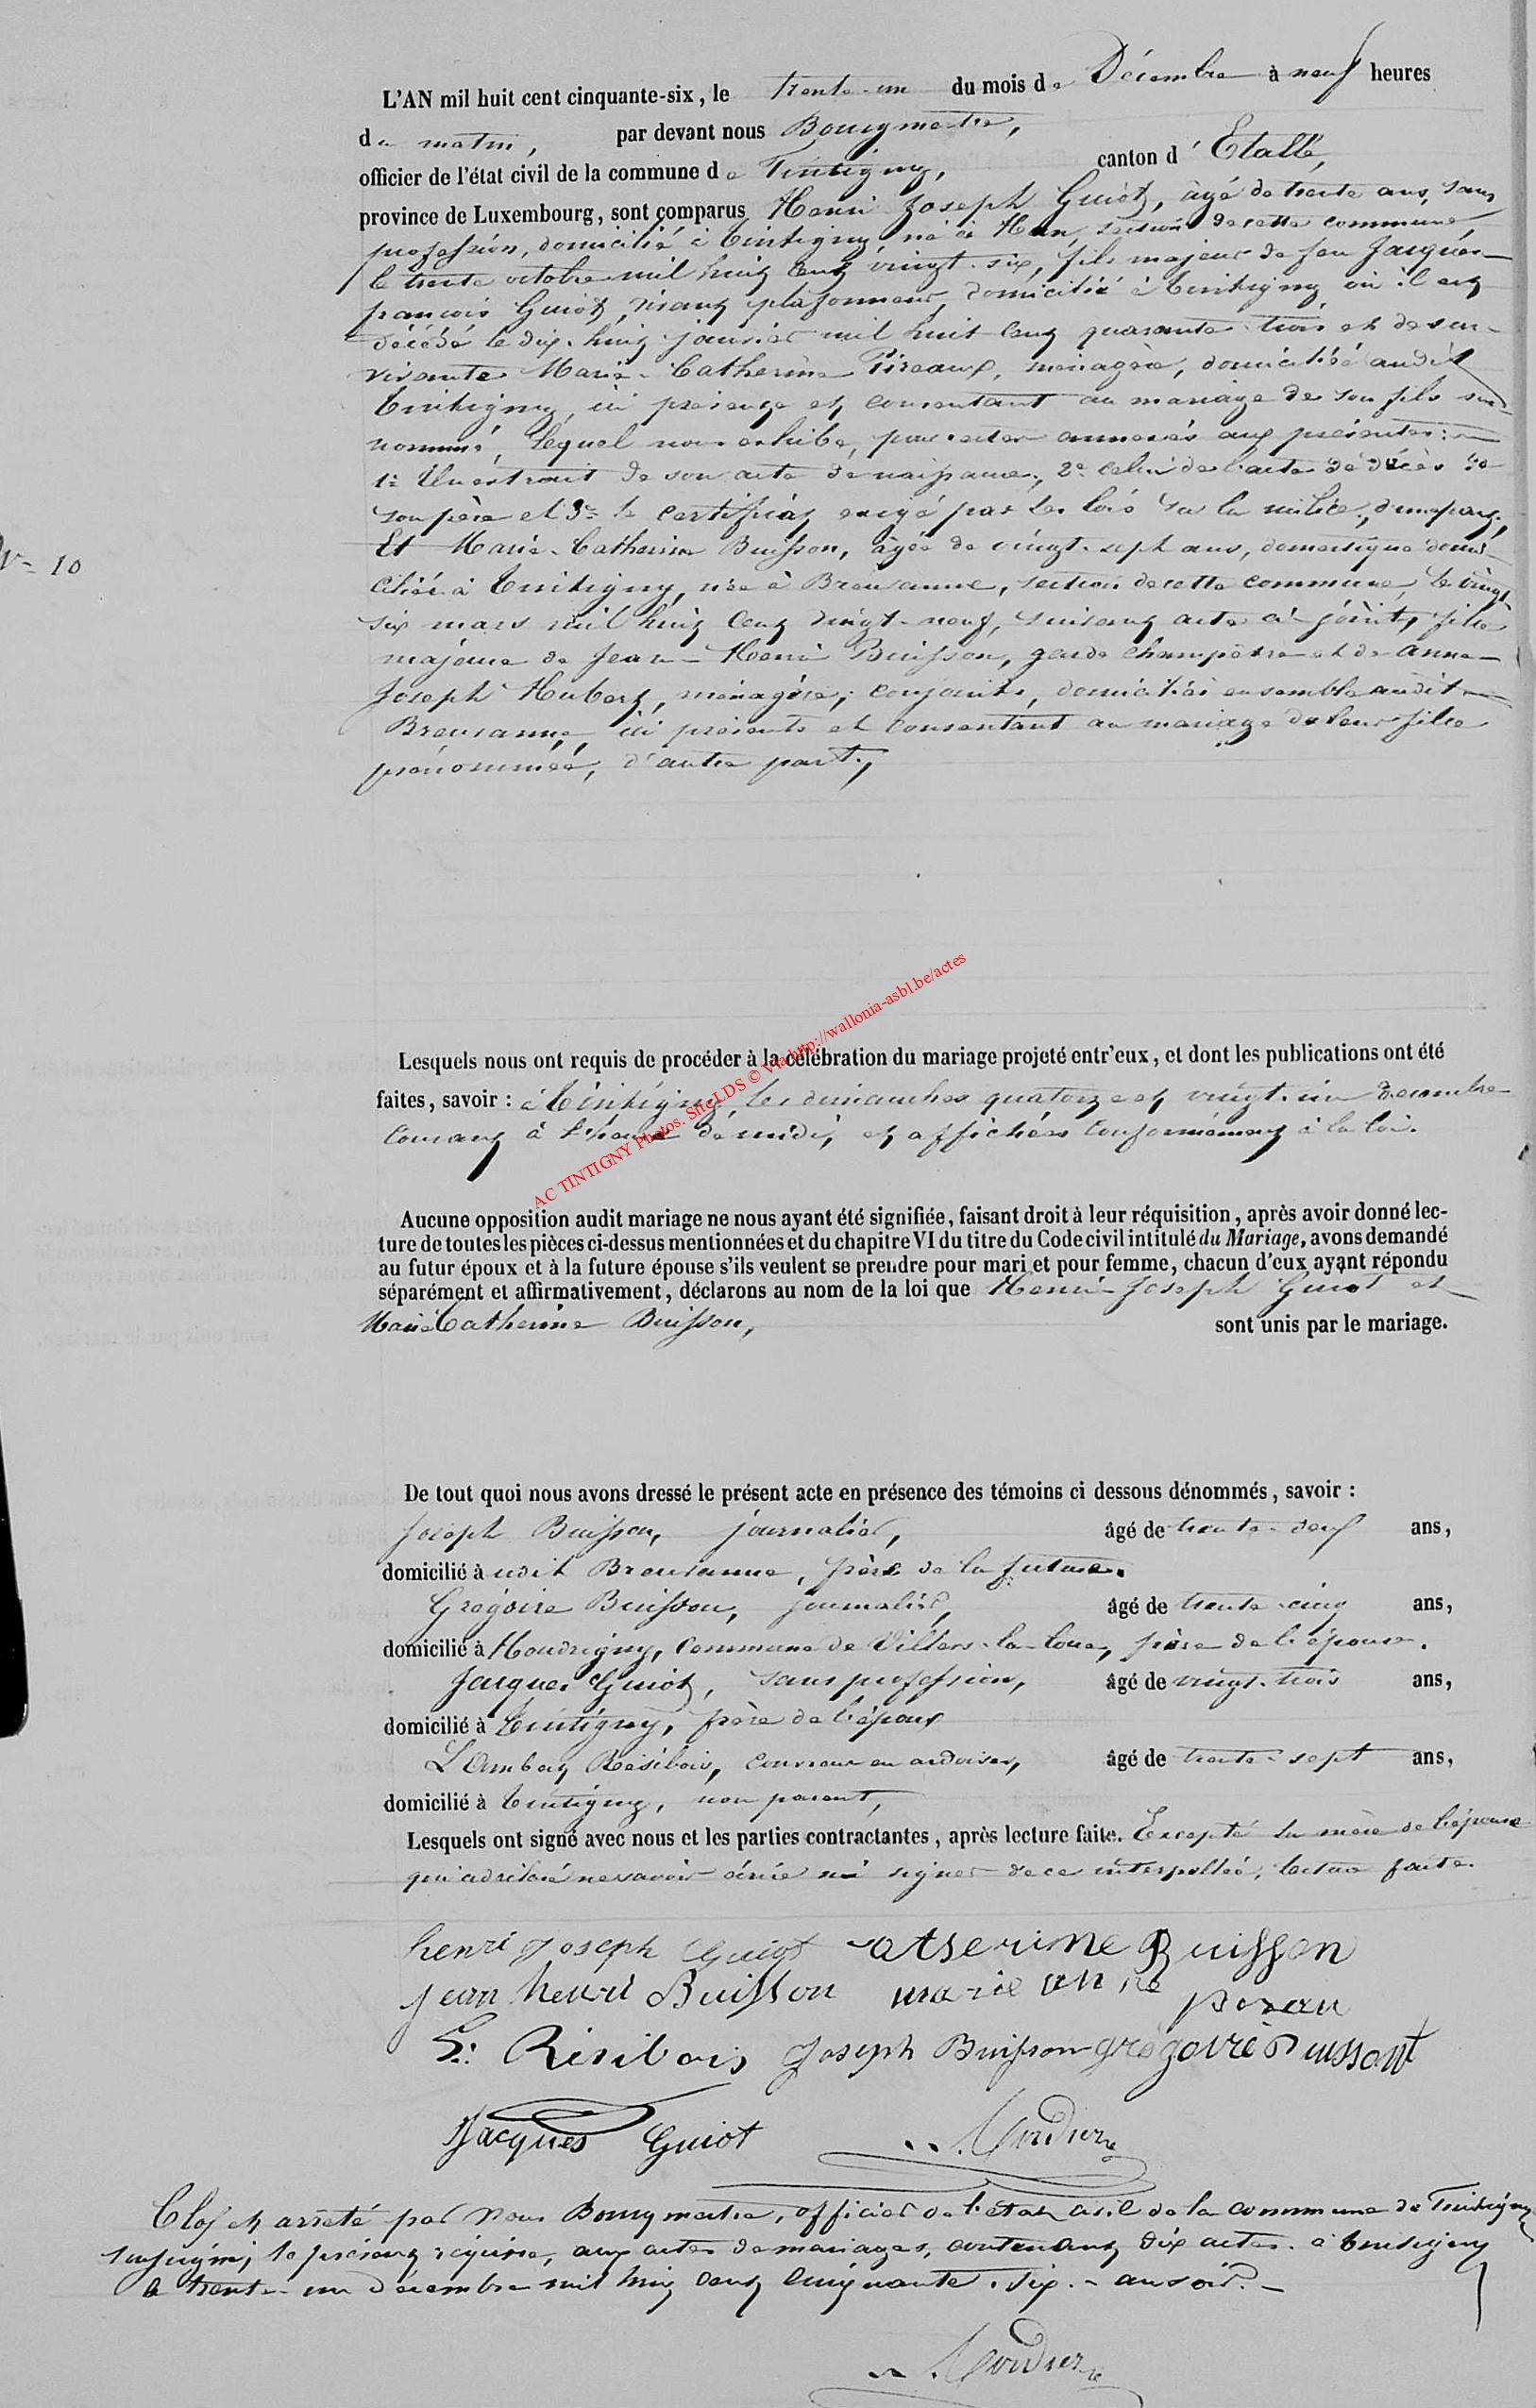 L'AN mil huit cent cinquante-six, le trente-un du mois de Décembre à neuf heures
du matin, par devant nous Bourgmestre,
officier de l'état civil de la commune de Tintigny, canton d'Etalle,
province de Luxembourg, sont comparus Henri Joseph Guiot, âgé de trente ans, sans
profession, domicilié à Tintigny, né à Han, section de cette commune,
le trente octobre mil huit cent vingt-six, fils majeur de feu Jacques
françois Guiot, vivant plafonneur, domicilié à Tintigny où il est
décédé le dix-huit janvier mil huit cent quarante-trois et de sur-
vivante Marie-Catherine Pireaux, ménagère, domiciliée audit
Tintigny, ici présente et consentant au mariage de son fils sus-
nommé, Lequel nous exhibe, pour être annexés aux présentes:
1º Un extrait de son acte de naissance, 2º celui de l'acte de décès de
son père et 3º le certificat exigé par les lois sur la milice, d'une part,
Nº 10
Et Marie-Catherine Buisson, âgée de vingt-sept ans, domestique domi-
ciliée à Tintigny, née à Breuvanne, section de cette commune, le vingt
six mars mil huit cent vingt-neuf, suivant acte ci-joint, fille
majeure de Jean-Henri Buisson, garde champêtre et de Anne-
Joseph Hubert, ménagère, conjoints, domiciliés ensemble audit
Breuvanne, ici présents et consentant au mariage de leur fille
prénommée, d'autre part,
Lesquels nous ont requis de procéder à la célébration du mariage projeté entr'eux, et dont les publications ont été
faites, savoir : à Tintigny, les dimanches quatorze et vingt-un décembre
courant à l'heure de midi, et affichées conformément à la loi.
AC TINTIGNY Photos. Site LDS © Via http://wallonia-asbl.be/actes
Aucune opposition audit mariage ne nous ayant été signifiée, faisant droit à leur réquisition, après avoir donné lec-
ture de toutes les pièces ci-dessus mentionnées et du chapitre VI du titre du Code civil intitulé du Mariage, avons demandé
au futur époux et à la future épouse s'ils veulent se prendre pour mari et pour femme, chacun d'eux ayant répondu
séparément et affirmativement, déclarons au nom de la loi que Henri-Joseph Guiot et
Marie Catherine Buisson, sont unis par le mariage.
De tout quoi nous avons dressé le présent acte en présence des témoins ci dessous dénommés, savoir :
Joseph Buisson, journalier, âgé de trente-neuf ans,
domicilié à udit Breuvanne, frère de la future.
Grégoire Buisson, journalier, âgé de trente-cinq ans,
domicilié à Houdrigny, commune de Villers-la-Loue, frère de l'épouse.
Jacques Guiot, sans profession, âgé de vingt-trois ans,
domicilié à Tintigny, frère de l'époux
Lambert Résibois, couvreur en ardoises, âgé de trente-sept ans,
domicilié à Tintigny, non parent,
Lesquels ont signé avec nous et les parties contractantes, après lecture faite. Excepté la mère de l'épouse
qui a déclaré ne savoir écrire ni signer de ce interpellée, lecture faite.
henri Joseph Guiot Catserime Buisson
jean henri Buisson marie anne
L: Résibois Joseph Buisson grégoire Buissont
Jacques Guiot
Clos et arrêté par Nous Bourgmestre, officier de l'état civil de la commune de Tintigny
soussigné, le présent régistre, aux actes de mariages, contenant dix actes. à Tintigny
le trente-un décembre mil huit cent cinquante-six.- au soir.-